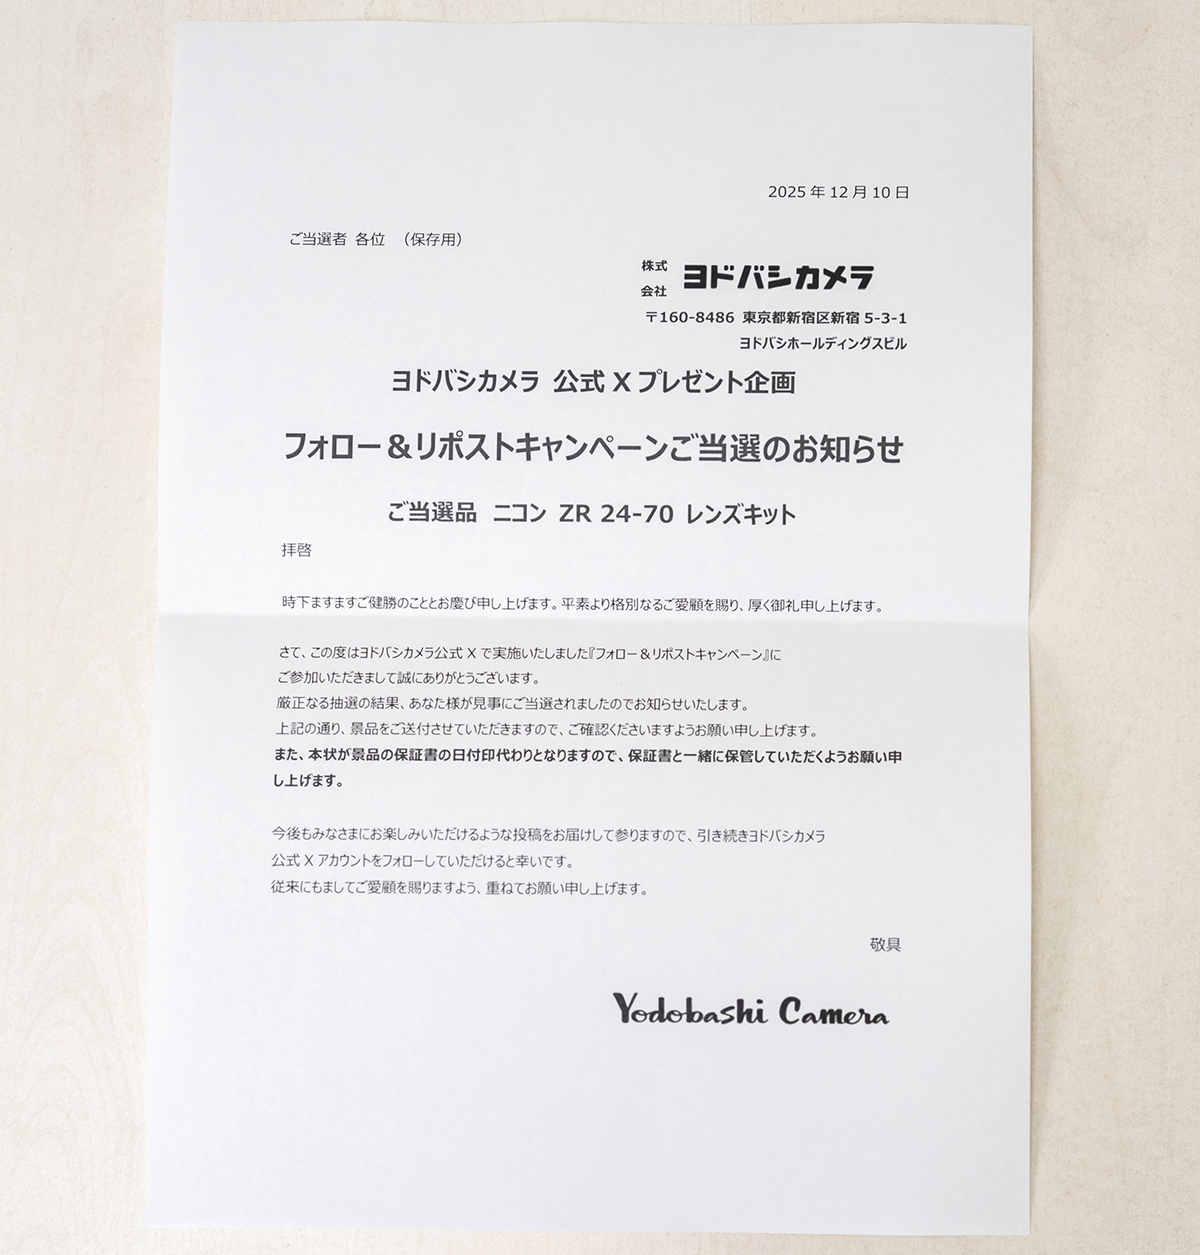 2025 年 12 月 10 日
ご当選者 各位 （保存用）
株式
会社 ヨドバシカメラ
〒160-8486 東京都新宿区新宿 5-3-1
ヨドバシホールディングスビル
ヨドバシカメラ 公式 X プレゼント企画
フォロー＆リポストキャンペーンご当選のお知らせ
ご当選品 ニコン ZR 24-70 レンズキット
拝啓
時下ますますご健勝のこととお慶び申し上げます。平素より格別なるご愛顧を賜り、厚く御礼申し上げます。
さて、この度はヨドバシカメラ公式 X で実施いたしました『フォロー＆リポストキャンペーン』に
ご参加いただきまして誠にありがとうございます。
厳正なる抽選の結果、あなた様が見事にご当選されましたのでお知らせいたします。
上記の通り、景品をご送付させていただきますので、ご確認くださいますようお願い申し上げます。
また、本状が景品の保証書の日付印代わりとなりますので、保証書と一緒に保管していただくようお願い申
し上げます。
今後もみなさまにお楽しみいただけるような投稿をお届けして参りますので、引き続きヨドバシカメラ
公式 X アカウントをフォローしていただけると幸いです。
従来にもましてご愛顧を賜りますよう、重ねてお願い申し上げます。
敬具
Yodobashi Camera